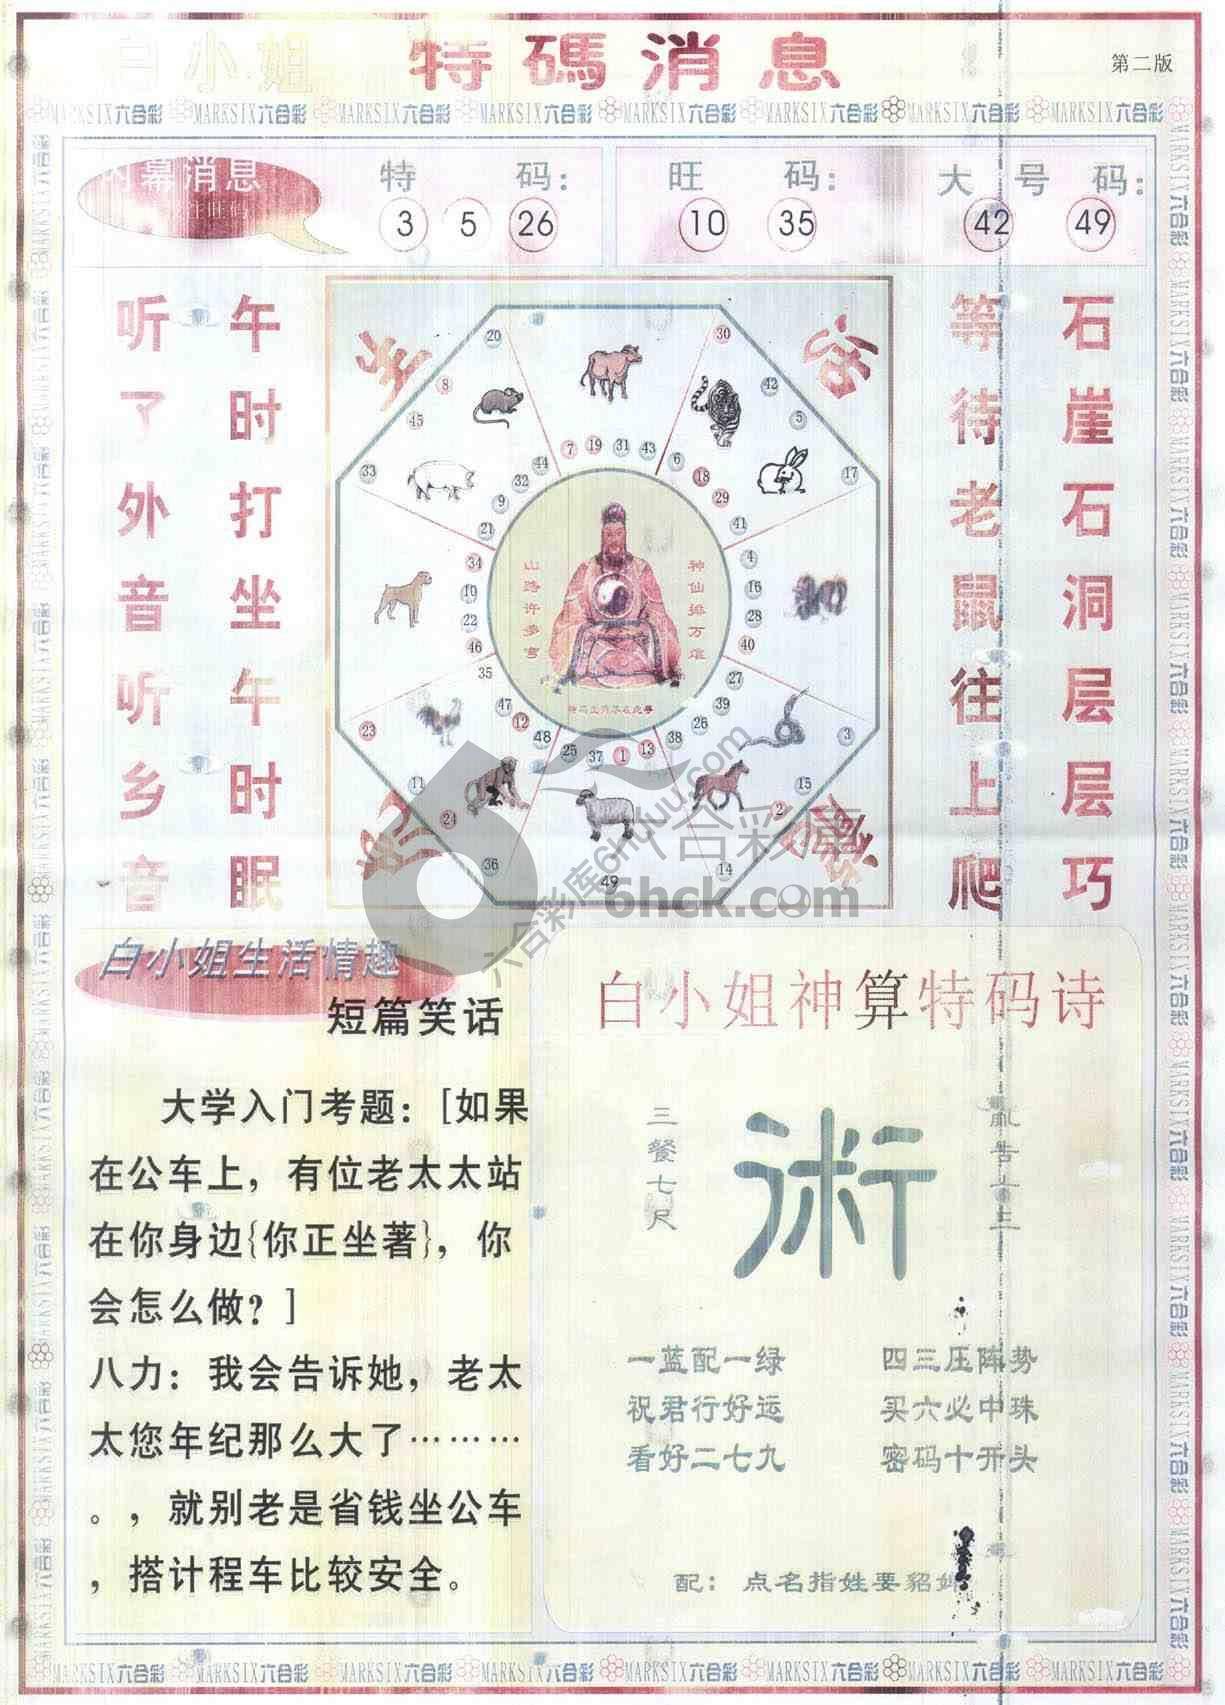 白小姐 特碼消息
第二版
MARKSIX六合彩 MARKSIX六合彩 MARKSIX六合彩 MARKSIX六合彩 MARKSIX六合彩 MARKSIX六合彩 MARKSIX六合彩 MARKSIX六合彩
内幕消息
特码：
3 5 26
旺码：
10 35
大号码：
42 49
石崖石洞层层巧
等待老鼠往上爬
午时打坐午时眠
听了外音听乡音
20 8 45 33
30 42 5 17
7 19 31 43
6 18 29 41
44 32 9 21
34 10 22 46
4 16 28 40
35 47 12 48
25 37 1 13
38 26 39 27
23 11 24 36
49
3 15 2 14
神仙排万
山路许多弯
六合彩库
6hck.com
白小姐生活情趣
短篇笑话
大学入门考题：[如果
在公车上，有位老太太站
在你身边{你正坐著}，你
会怎么做？]
八力：我会告诉她，老太
太您年纪那么大了………
。，就别老是省钱坐公车
，搭计程车比较安全。
白小姐神算特码诗
三餐七尺
術
一蓝配一绿 四三压阵势
祝君行好运 买六必中珠
看好二七九 密码十开头
配：点名指姓要貂
MARKSIX六合彩 MARKSIX六合彩 MARKSIX六合彩 MARKSIX六合彩 MARKSIX六合彩 MARKSIX六合彩 MARKSIX六合彩 MARKSIX六合彩